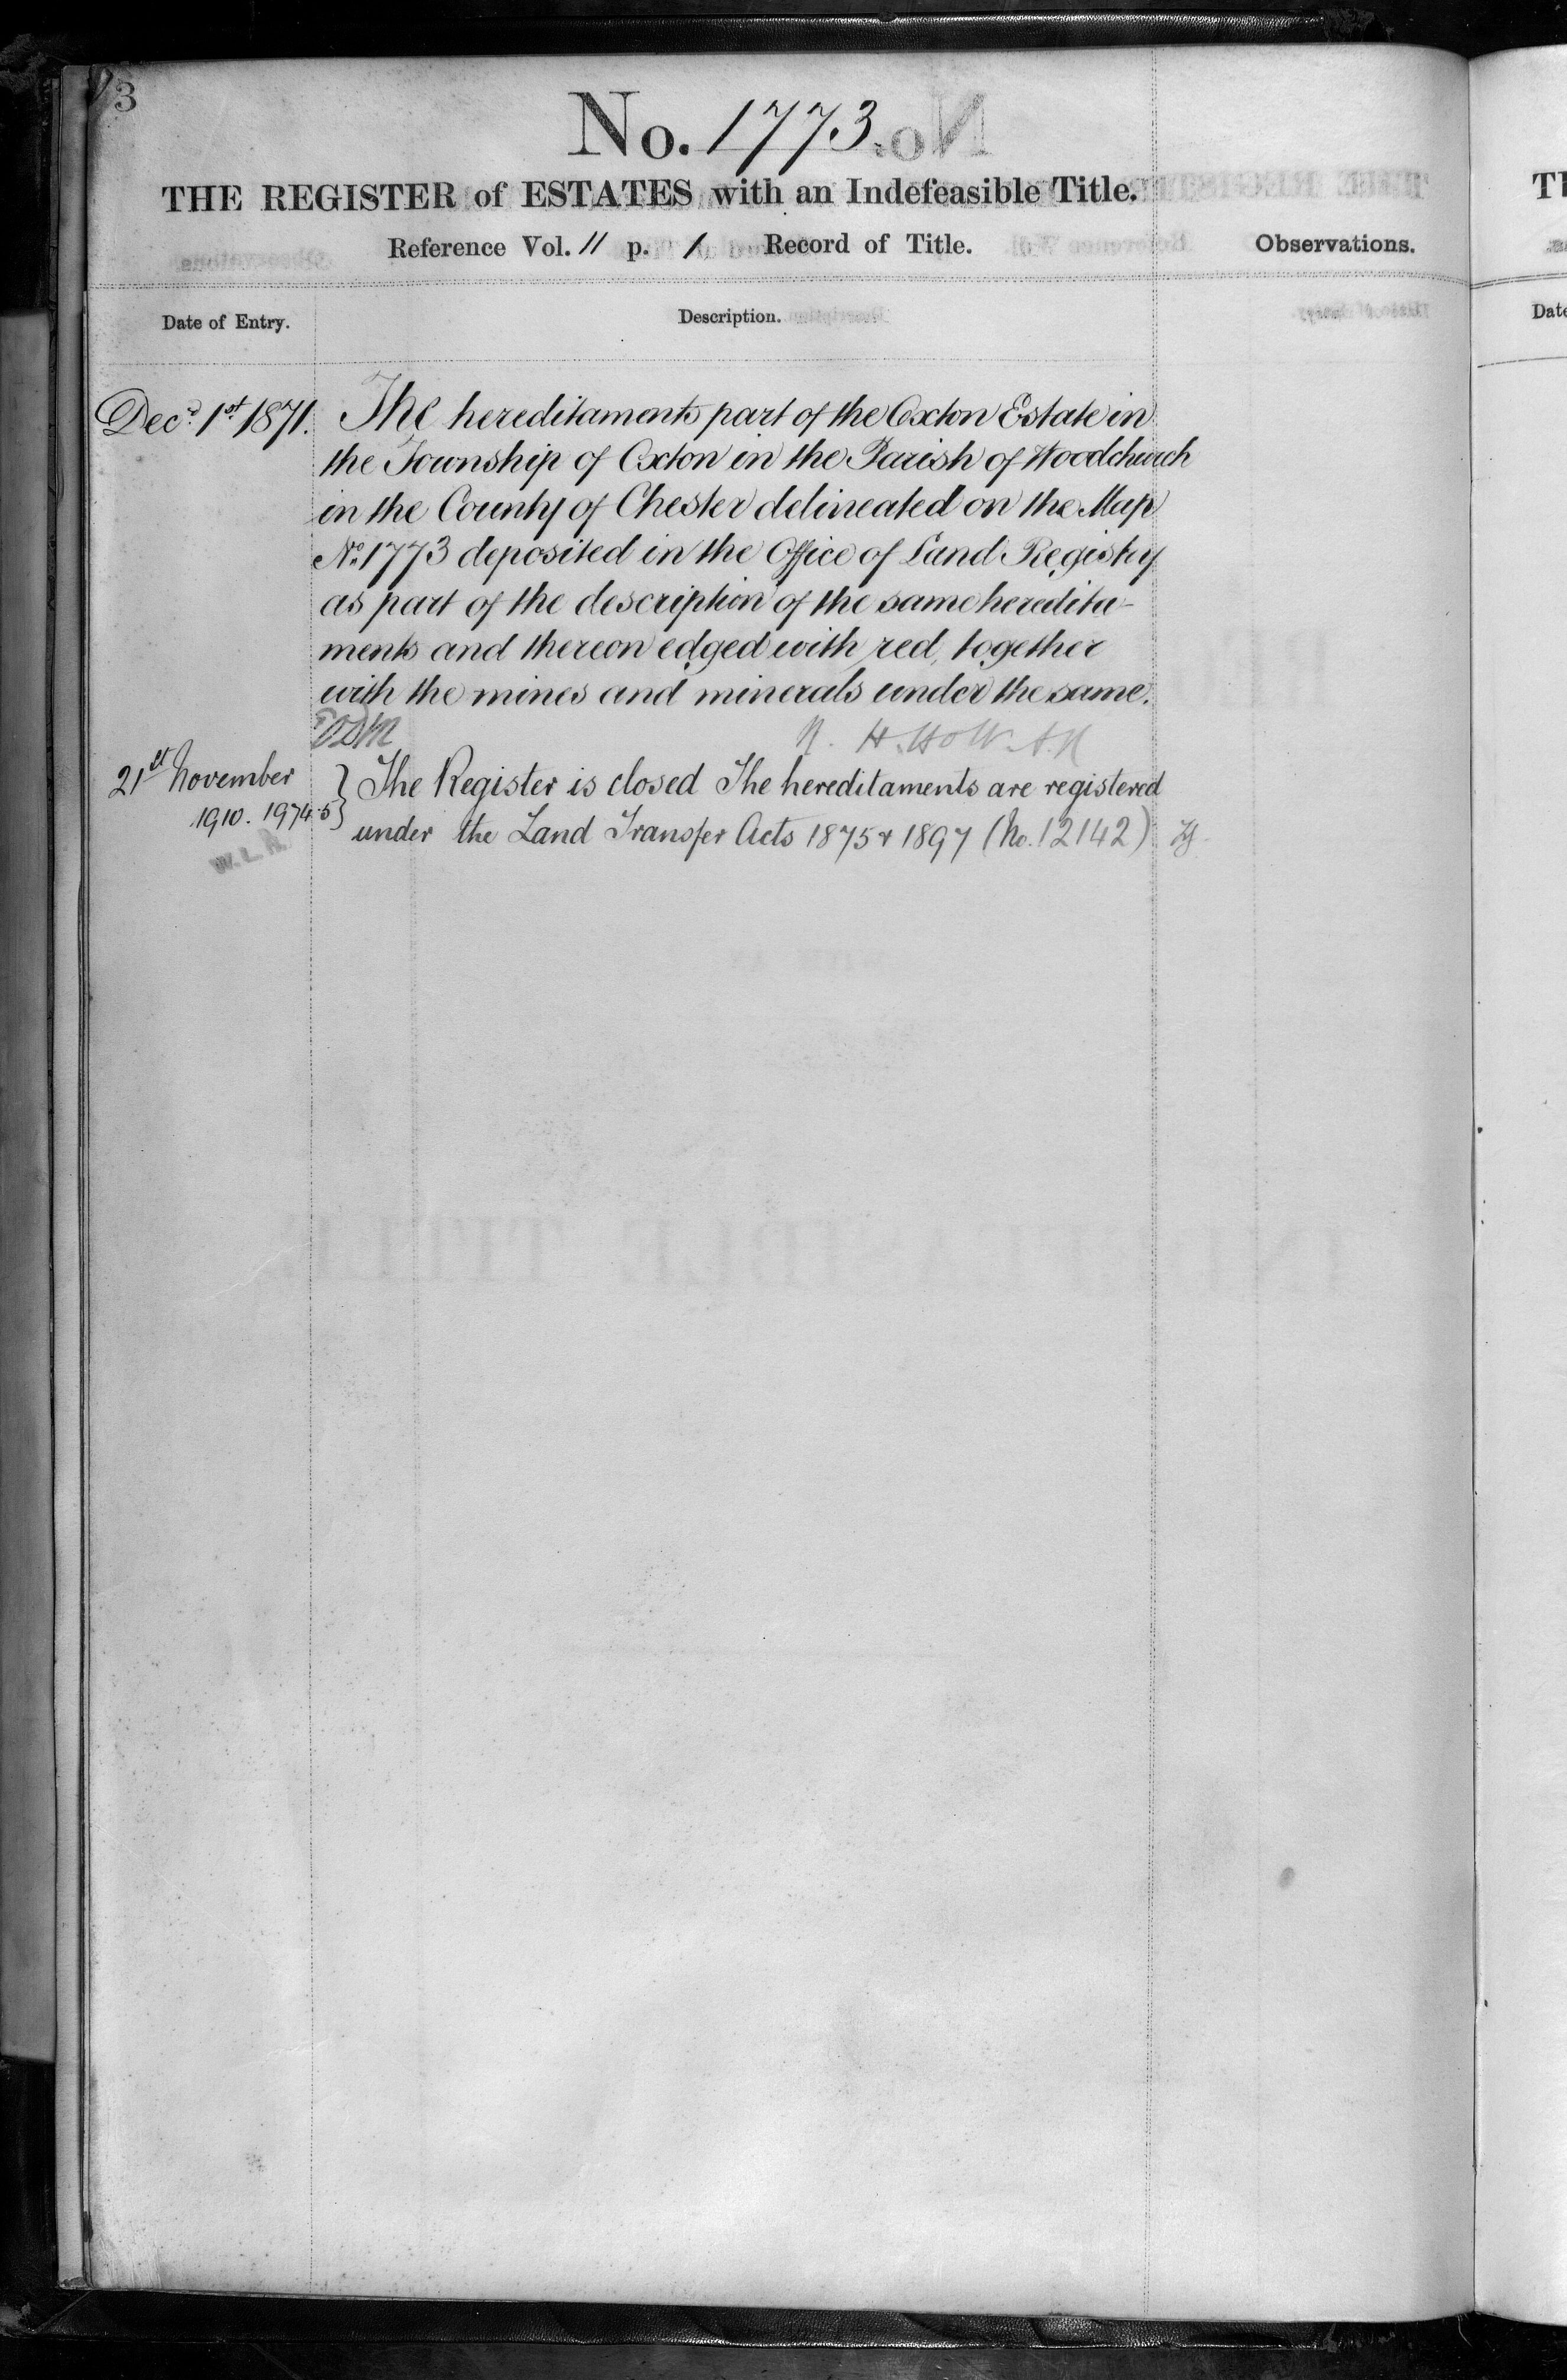 3
No. 1773.
THE REGISTER of ESTATES with an Indefeasible Title.
Reference Vol. 11 p. 1 Record of Title.
Observations.
Date of Entry.
Description.
Decr. 1st 1871. The hereditaments part of the Oxton Estate in
the Township of Oxton in the Parish of Woodchurch
in the County of Chester delineated on the Map
No. 1773 deposited in the Office of Land Registry
as part of the description of the same heredita-
ments and thereon edged with red, together
with the mines and minerals under the same.
21st November } The Register is closed The hereditaments are registered
1910. 1974.5 } under the Land Transfer Acts 1875 & 1897 (No. 12142)
W.L.R.
TH
Date